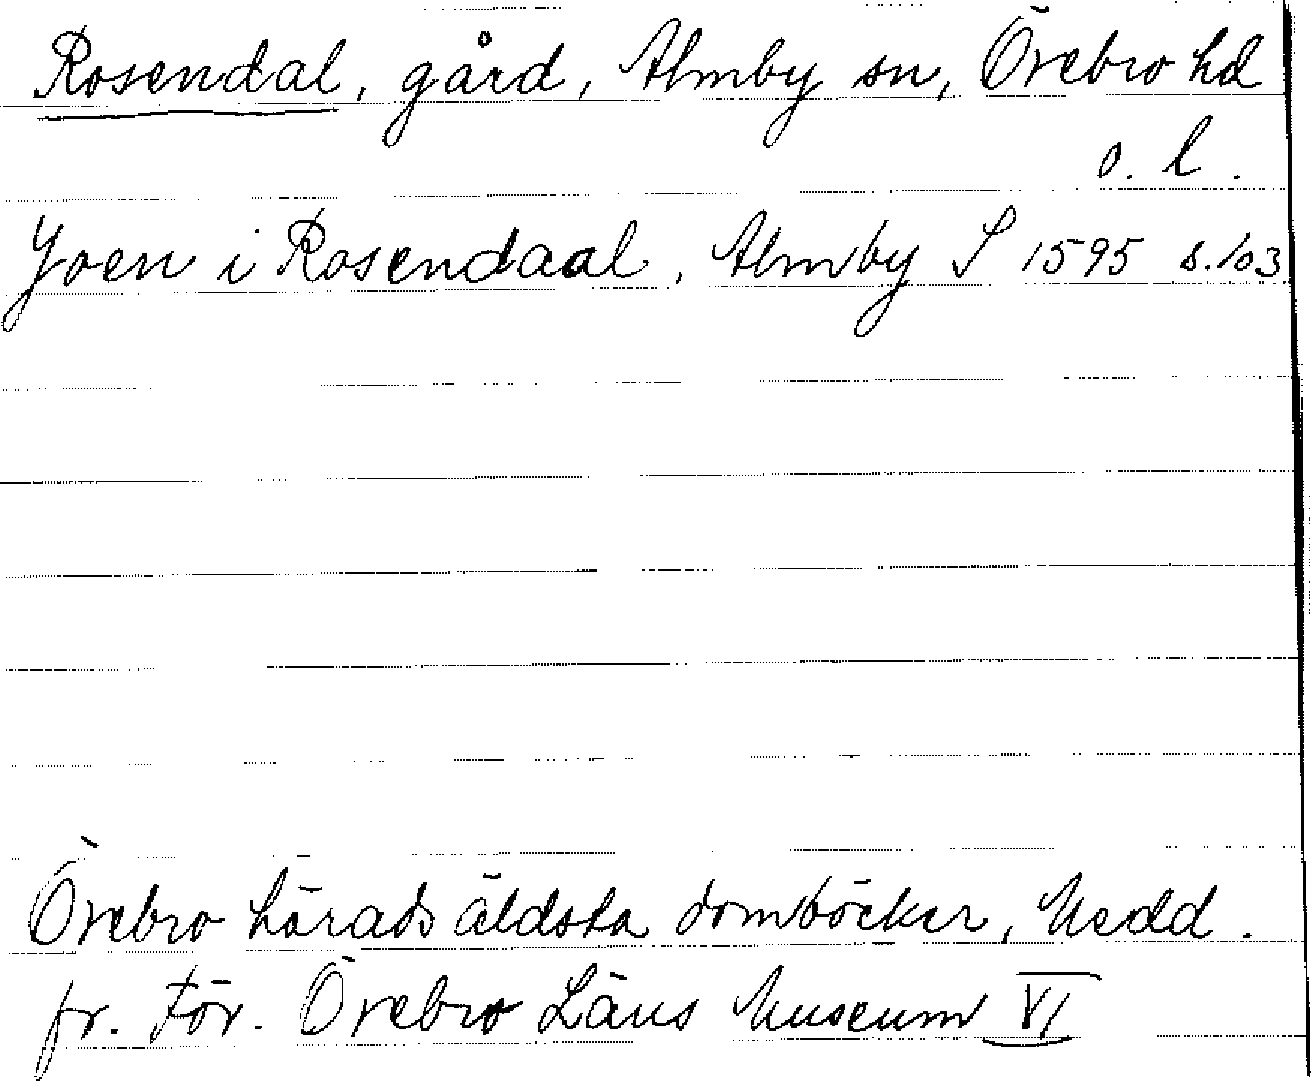 Rosendal, gård, Almby sn, Örebro hd
o. l.
Joen i Rosendaal, Almby S 1595 s.103
Örebro härads äldsta domböcker, Medd.
fr. För. Örebro Läns Museum VI